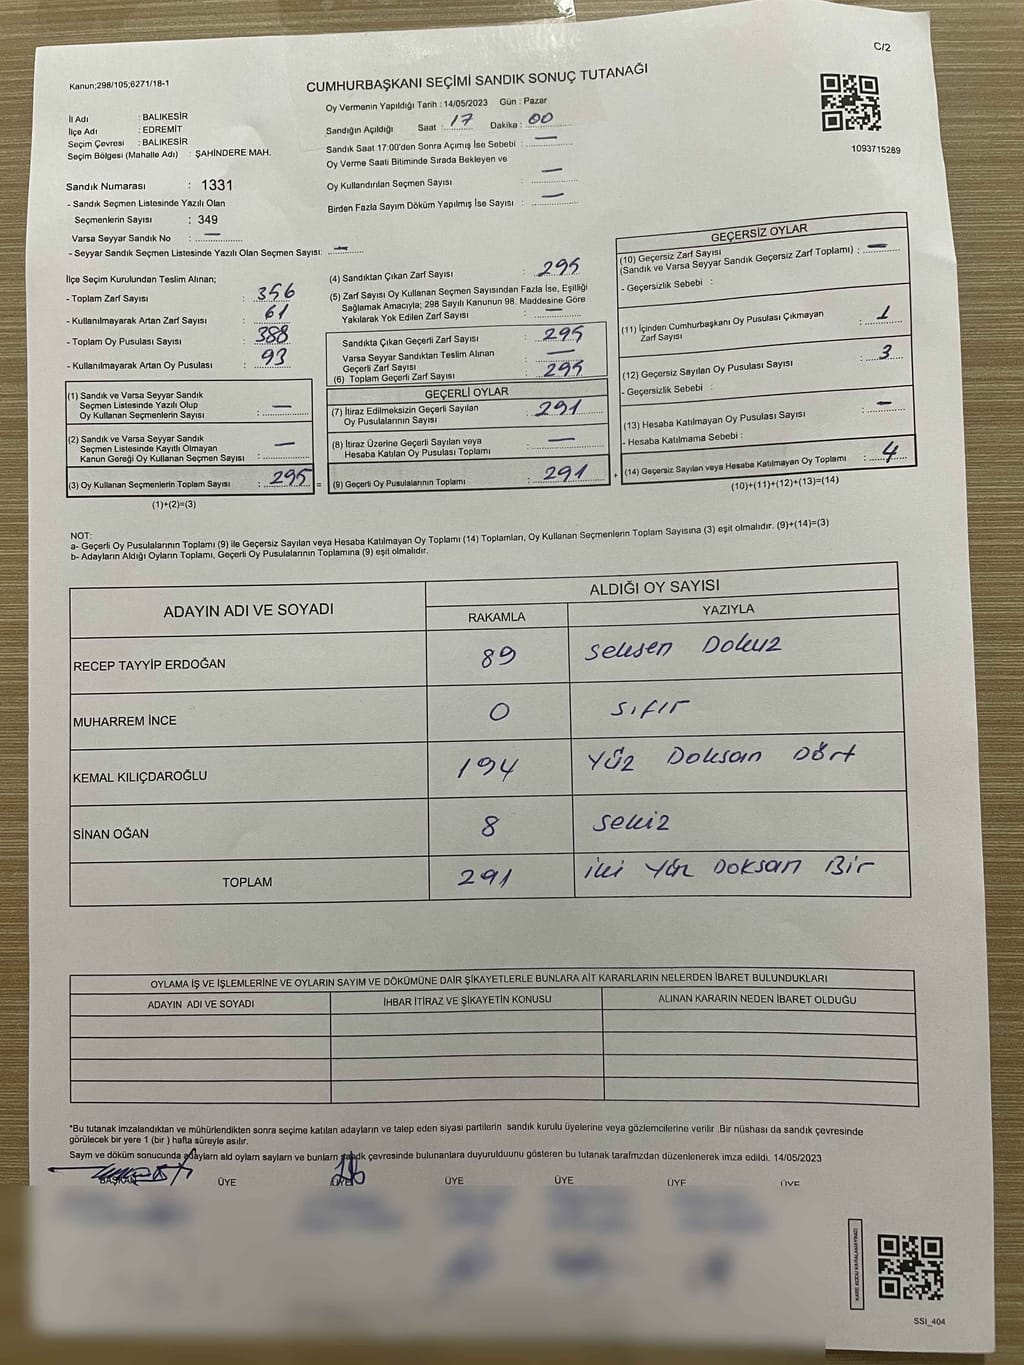 C/2
Kanun;298/105;6271/18-1
CUMHURBAŞKANI SEÇİMİ SANDIK SONUÇ TUTANAĞI
İl Adı : BALIKESİR
İlçe Adı : EDREMİT
Seçim Çevresi : BALIKESİR
Seçim Bölgesi (Mahalle Adı) : ŞAHİNDERE MAH.
Oy Vermenin Yapıldığı Tarih : 14/05/2023 Gün : Pazar
Sandığın Açıldığı Saat : 17 Dakika : 00
Sandık Saat 17:00'den Sonra Açımış İse Sebebi : —
Oy Verme Saati Bitiminde Sırada Bekleyen ve
Oy Kullandırılan Seçmen Sayısı : —
Birden Fazla Sayım Döküm Yapılmış İse Sayısı : —
1093715289
Sandık Numarası : 1331
- Sandık Seçmen Listesinde Yazılı Olan
Seçmenlerin Sayısı : 349
Varsa Seyyar Sandık No : —
- Seyyar Sandık Seçmen Listesinde Yazılı Olan Seçmen Sayısı: —
İlçe Seçim Kurulundan Teslim Alınan;
- Toplam Zarf Sayısı : 356
- Kullanılmayarak Artan Zarf Sayısı : 61
- Toplam Oy Pusulası Sayısı : 388
- Kullanılmayarak Artan Oy Pusulası : 93
(1) Sandık ve Varsa Seyyar Sandık
Seçmen Listesinde Yazılı Olup
Oy Kullanan Seçmenlerin Sayısı : —
(2) Sandık ve Varsa Seyyar Sandık
Seçmen Listesinde Kayıtlı Olmayan
Kanun Gereği Oy Kullanan Seçmen Sayısı : —
(3) Oy Kullanan Seçmenlerin Toplam Sayısı : 295 =
(1)+(2)=(3)
(4) Sandıktan Çıkan Zarf Sayısı : 295
(5) Zarf Sayısı Oy Kullanan Seçmen Sayısından Fazla İse, Eşitliği
Sağlamak Amacıyla; 298 Sayılı Kanunun 98. Maddesine Göre
Yakılarak Yok Edilen Zarf Sayısı : —
Sandıkta Çıkan Geçerli Zarf Sayısı : 295
Varsa Seyyar Sandıktan Teslim Alınan
Geçerli Zarf Sayısı : —
(6) Toplam Geçerli Zarf Sayısı : 295
GEÇERLİ OYLAR
(7) İtiraz Edilmeksizin Geçerli Sayılan
Oy Pusulasının Sayısı : 291
(8) İtiraz Üzerine Geçerli Sayılan veya
Hesaba Katılan Oy Pusulası Toplamı : —
(9) Geçerli Oy Pusulalarının Toplamı : 291 +
GEÇERSİZ OYLAR
(10) Geçersiz Zarf Sayısı
(Sandık ve Varsa Seyyar Sandık Geçersiz Zarf Toplamı) : —
- Geçersizlik Sebebi :
(11) İçinden Cumhurbaşkanı Oy Pusulası Çıkmayan
Zarf Sayısı : 1
(12) Geçersiz Sayılan Oy Pusulası Sayısı : 3
- Geçersizlik Sebebi :
(13) Hesaba Katılmayan Oy Pusulası Sayısı : —
- Hesaba Katılmama Sebebi :
(14) Geçersiz Sayılan veya Hesaba Katılmayan Oy Toplamı : 4
(10)+(11)+(12)+(13)=(14)
NOT:
a- Geçerli Oy Pusulalarının Toplamı (9) ile Geçersiz Sayılan veya Hesaba Katılmayan Oy Toplamı (14) Toplamları, Oy Kullanan Seçmenlerin Toplam Sayısına (3) eşit olmalıdır. (9)+(14)=(3)
b- Adayların Aldığı Oyların Toplamı, Geçerli Oy Pusulalarının Toplamına (9) eşit olmalıdır.
ADAYIN ADI VE SOYADI ALDIĞI OY SAYISI
RAKAMLA YAZIYLA
RECEP TAYYİP ERDOĞAN 89 Seksen Dokuz
MUHARREM İNCE 0 Sıfır
KEMAL KILIÇDAROĞLU 194 Yüz Doksan Dört
SİNAN OĞAN 8 Sekiz
TOPLAM 291 İki Yüz Doksan Bir
OYLAMA İŞ VE İŞLEMLERİNE VE OYLARIN SAYIM VE DÖKÜMÜNE DAİR ŞİKAYETLERLE BUNLARA AİT KARARLARIN NELERDEN İBARET BULUNDUKLARI
ADAYIN ADI VE SOYADI İHBAR İTİRAZ VE ŞİKAYETİN KONUSU ALINAN KARARIN NEDEN İBARET OLDUĞU
*Bu tutanak imzalandıktan ve mühürlendikten sonra seçime katılan adayların ve talep eden siyasi partilerin sandık kurulu üyelerine veya gözlemcilerine verilir .Bir nüshası da sandık çevresinde
görülecek bir yere 1 (bir ) hafta süreyle asılır.
Sayım ve döküm sonucunda adayların ald oyların sayları ve bunların sandık çevresinde bulunanlara duyurulduunu gösteren bu tutanak tarafmzdan düzenlenerek imza edildi. 14/05/2023
BAŞKAN ÜYE ÜYE ÜYE ÜYE ÜYE ÜYE
KARE KODU KARALAMAYINIZ!
SSI_404